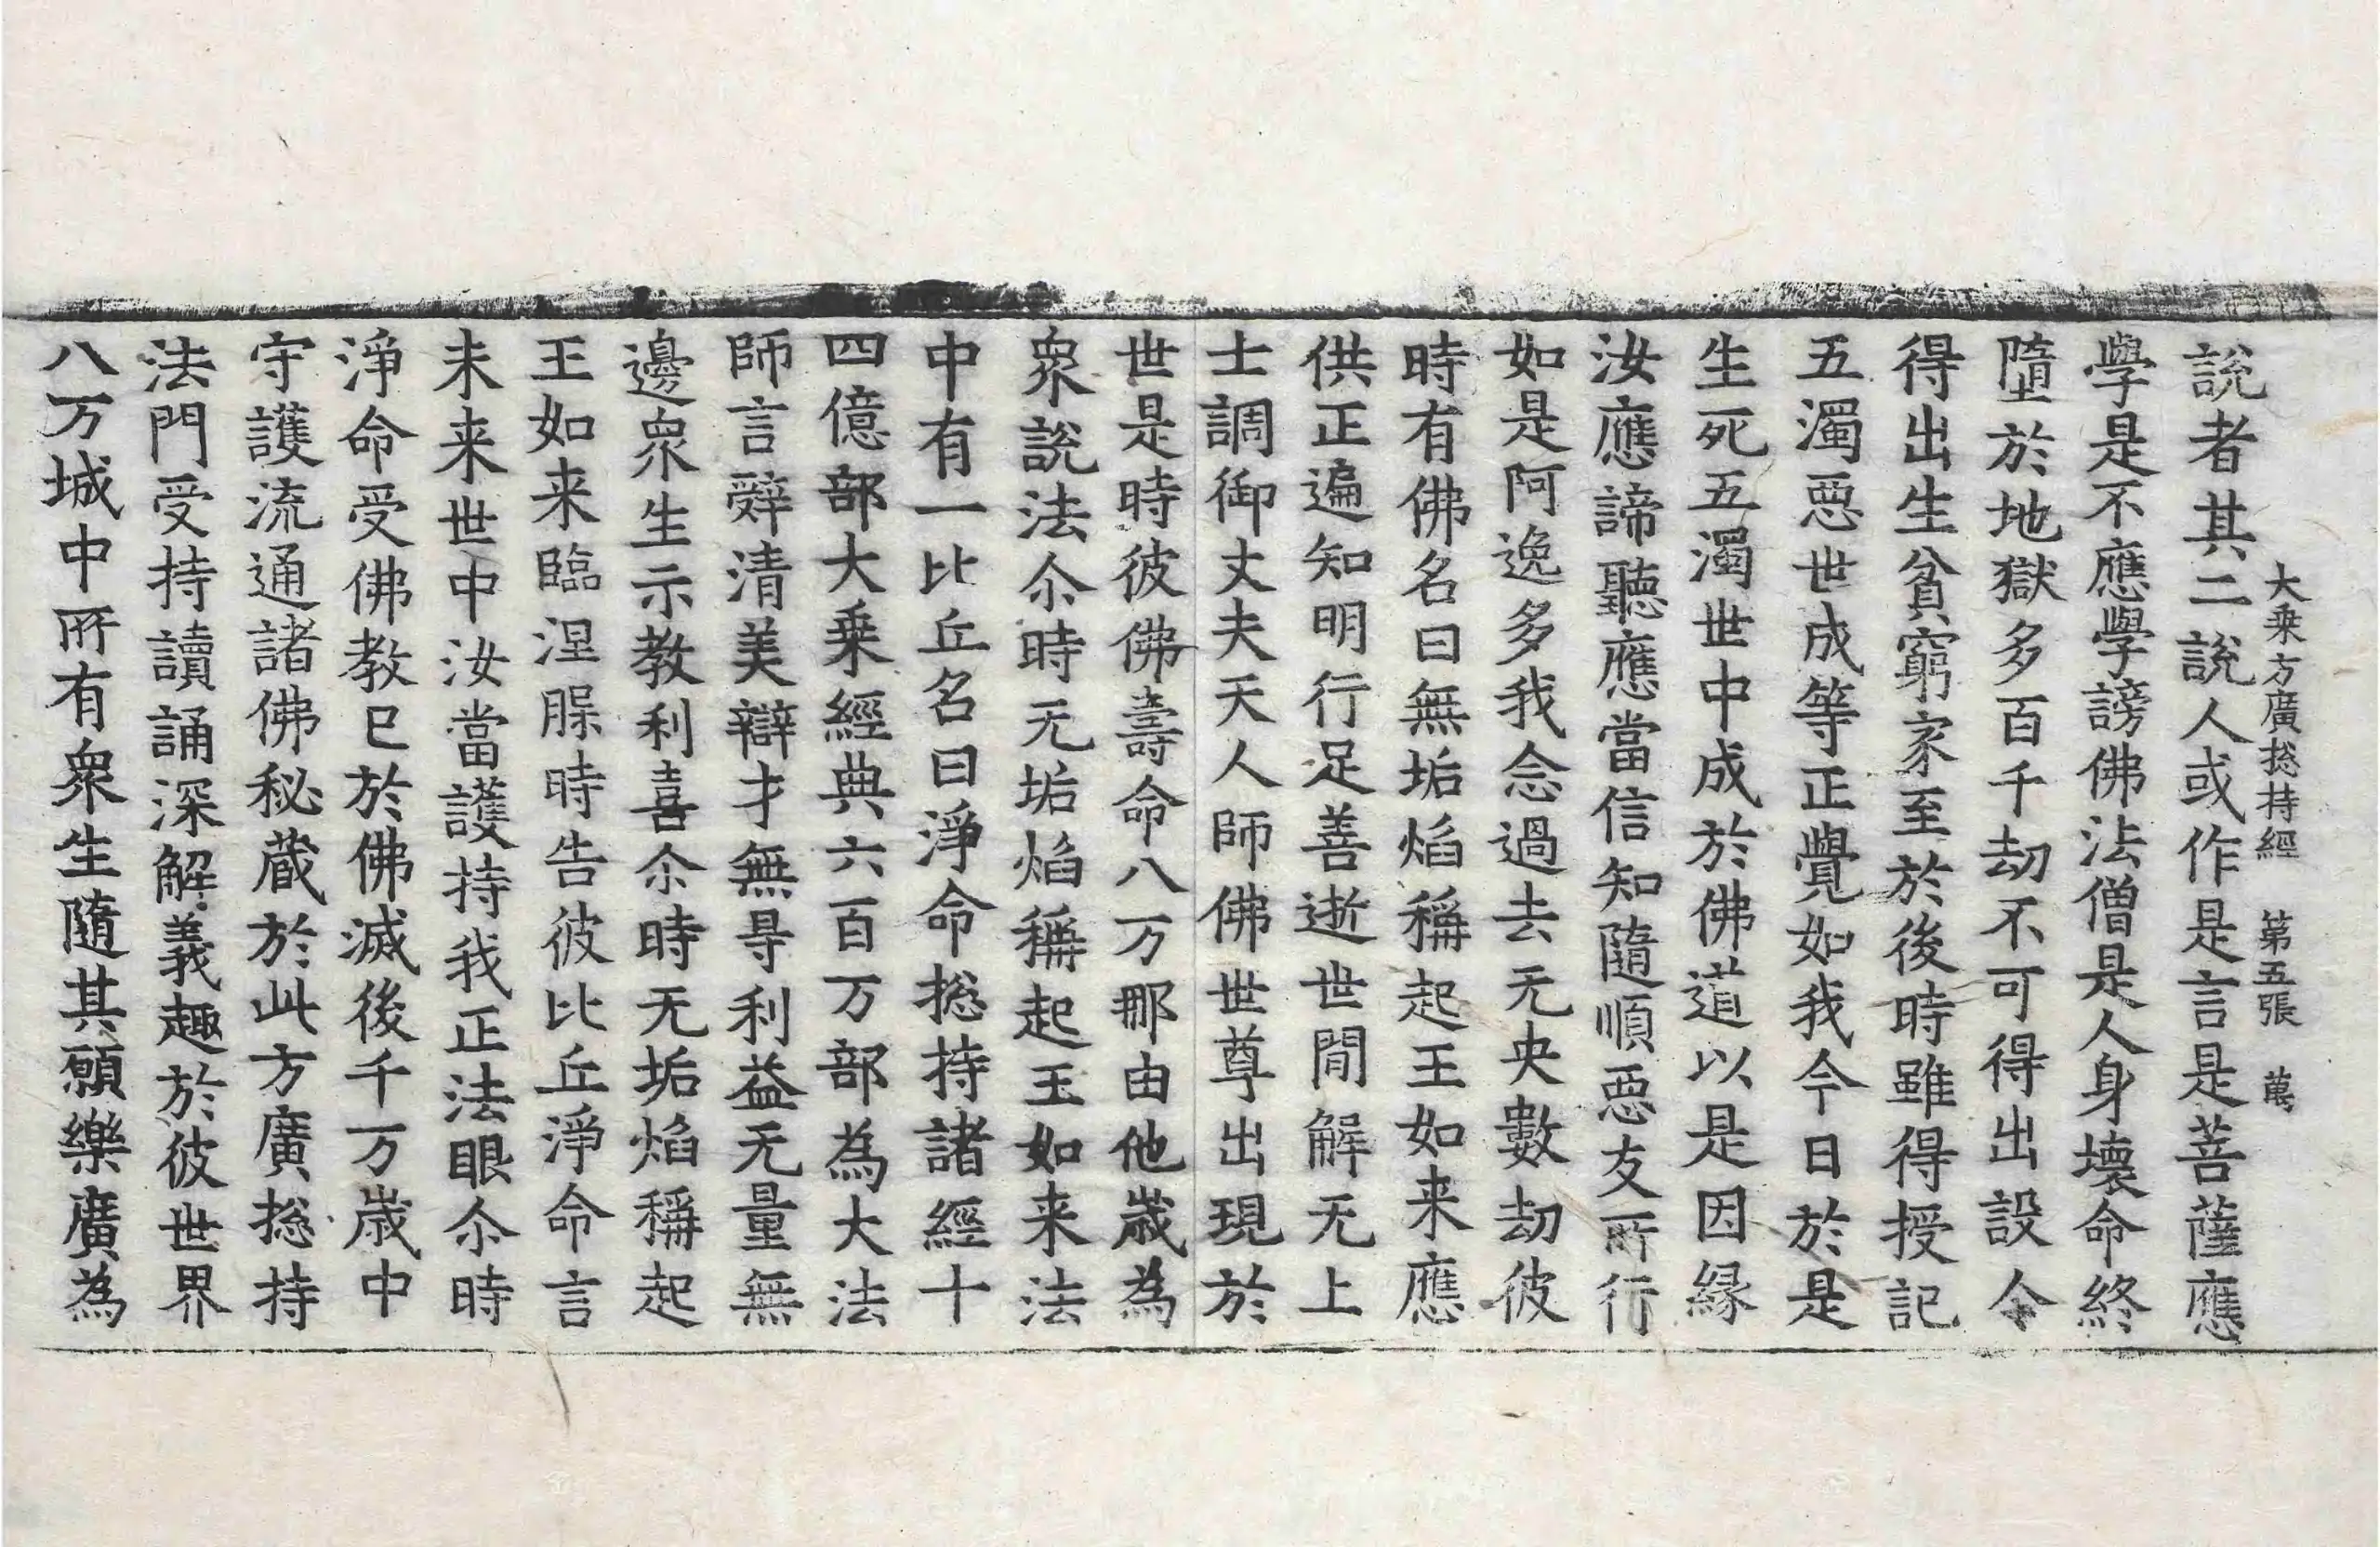 大乗方廣揔持經　第五張　萬
說者其二說人或作是言是菩薩應
學是不應學謗佛法僧是人身壞命終
墮於地獄多百千劫不可得出設令
得出生貧窮家至於後時雖得授記
五濁惡世成等正覺如我今日於是
生死五濁世中成於佛道以是因緣
汝應諦聽應當信知隨順惡友所行
如是阿逸多我念過去无央數劫彼
時有佛名曰無垢焰稱起王如来應
供正遍知明行足善逝世閒解无上
士調御丈夫天人師佛世尊出現於
世是時彼佛壽命八万那由他歲為
衆說法尒時无垢焰稱起王如来法
中有一比丘名曰淨命揔持諸經十
四億部大乗經典六百万部為大法
師言辝清美辯才無㝵利益无量無
邊衆生示教利喜尒時无垢焰稱起
王如来臨涅槃時告彼比丘淨命言
未来世中汝當護持我正法眼尒時
淨命受佛教已於佛滅後千万歲中
守護流通諸佛秘蔵於此方廣揔持
法門受持讀誦深解義趣於彼世界
八万城中所有衆生隨其願樂廣為